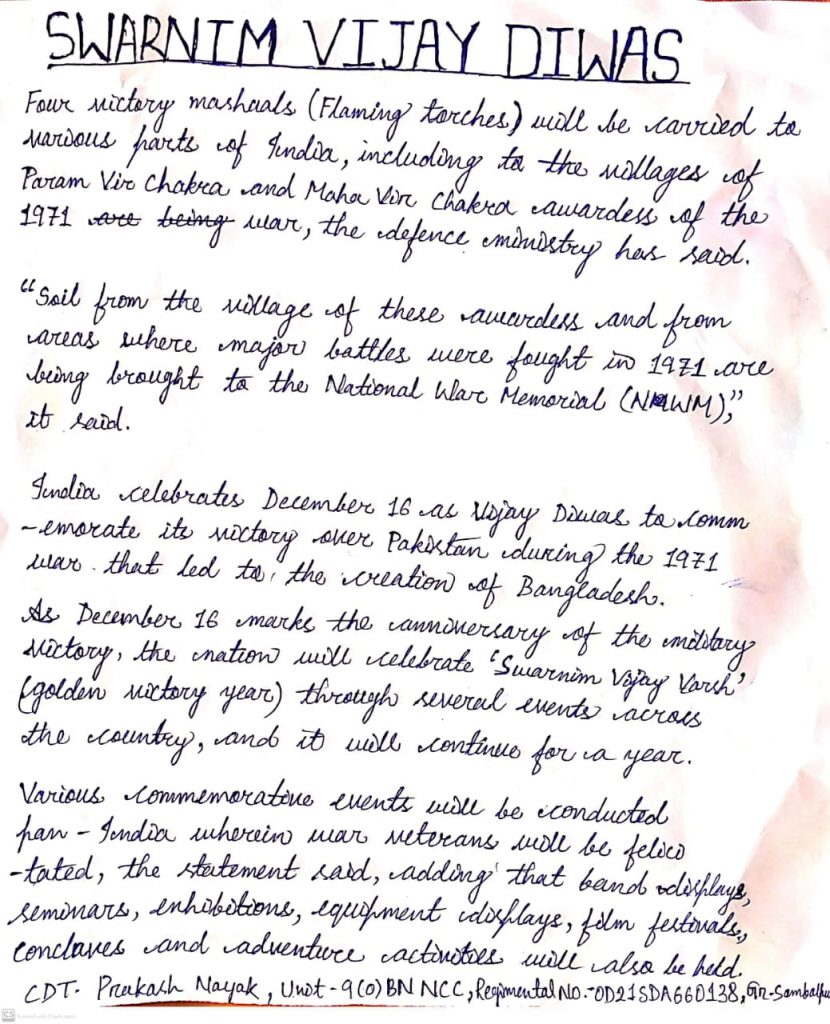 SWARNIM VIJAY DIWAS
Four victory mashaals (Flaming torches) will be carried to
various parts of India, including to the villages of
Param Vir Chakra and Maha Vir Chakra awardess of the
1971 are being war, the defence ministry has said.
"Soil from the village of these awardess and from
areas where major battles were fought in 1971 are
being brought to the National War Memorial (NWM),"
it said.
India celebrates December 16 as Vijay Diwas to comm
-emorate its victory over Pakistan during the 1971
war that led to the creation of Bangladesh.
As December 16 marks the anniversary of the military
victory, the nation will celebrate 'Swarnim Vijay Varsh'
(golden victory year) through several events across
the country, and it will continue for a year.
Various commemorative events will be conducted
pan-India wherein war veterans will be felici
-tated, the statement said, adding that band displays,
seminars, exhibitions, equipment displays, film festivals,
conclaves and adventure activities will also be held.
CDT. Prakash Nayak, Unit-9(O)BN NCC, Regimental NO.-OD21SDA660138, Gr-Sambalpu
CS Scanned with CamScanner